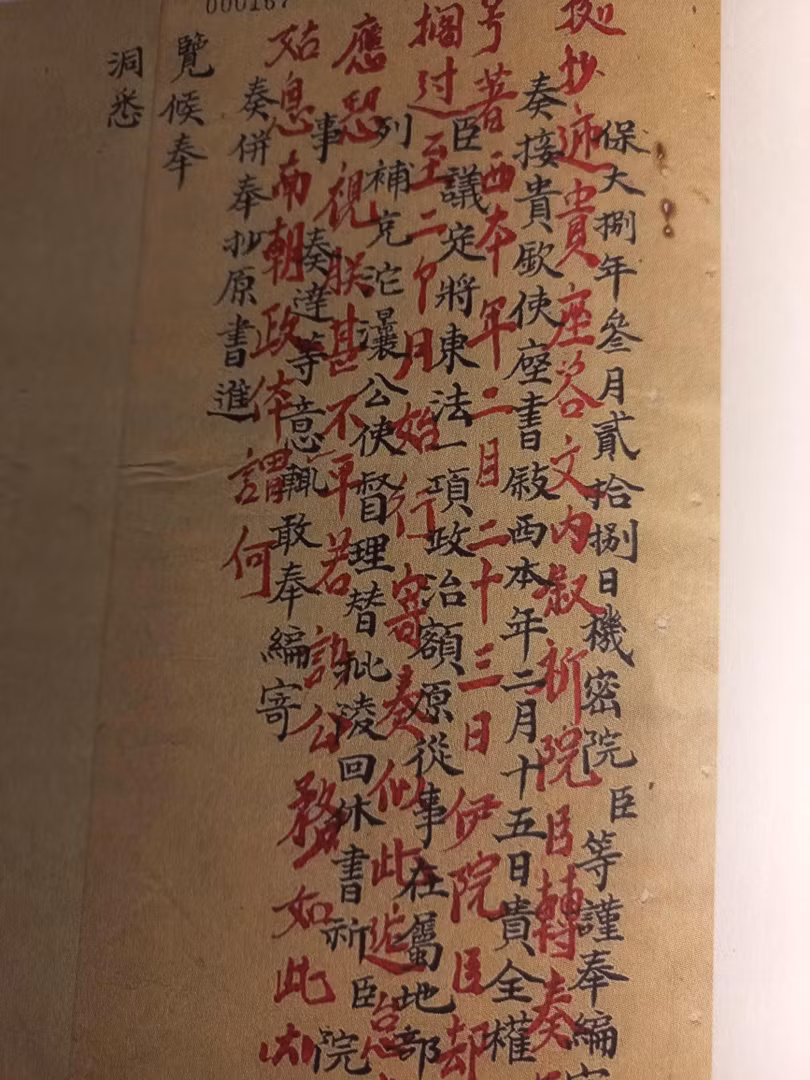 000167
保大捌年叁月貳拾捌日機密院臣等謹奉編
奏接貴欽使座書敍西本年二月十五日貴全權
臣議定將東法一項政治額原從事在屬地部
列補充沱灢公使督理替批淩回休書祈臣院
事
奏達等意輒敢奉編寄
奏併奉抄原書進
覽候奉
洞悉
抄遞貴座咨文內叙祈院臣轉奏
号著西本年二月二十三日伊院臣却
擱过至二卩月始行寄奏似此
應恐視朕甚不平若訴公務如此
姑息南朝政体謂何